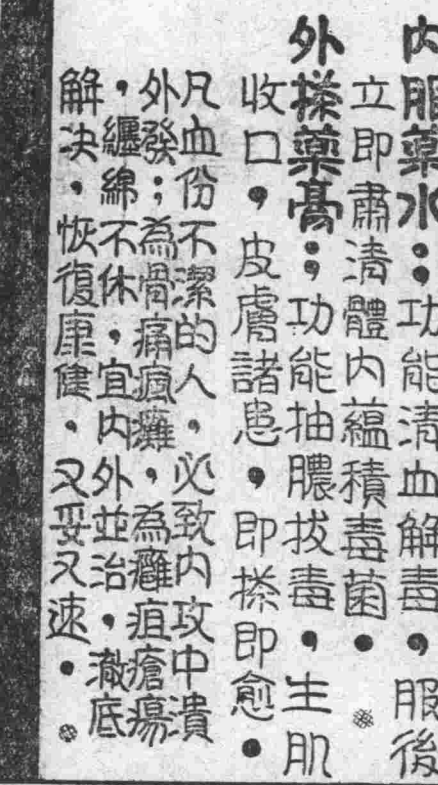 內服藥水：功能清血解毒，服後
立即肅清體內蘊積毒菌。
外搽藥膏：功能抽膿拔毒，生肌
收口，皮膚諸患，即搽即愈。
凡血份不潔的人，必致內攻中潰
外發；為骨痛瘋癱，為癰疽瘡瘍
，纏綿不休，宜內外並治，澈底
解決，恢復康健，又妥又速。